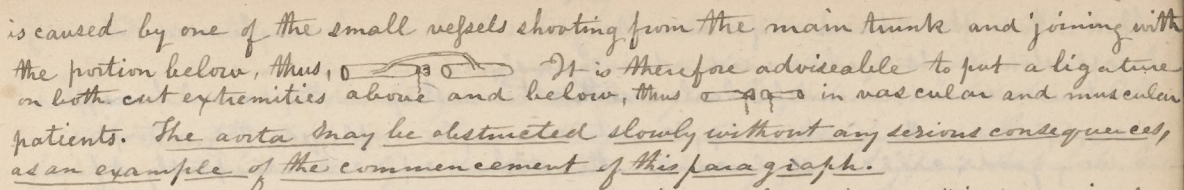 is caused by one of the small vessels shooting from the main trunk and joining with
the portion below, thus, It is therefore adviseable to put a ligature
on both cut extremities above and below, thus in vascular and muscular
patients. The aorta may be obstructed slowly without any serious consequences,
as an example of the commencement of this paragraph.